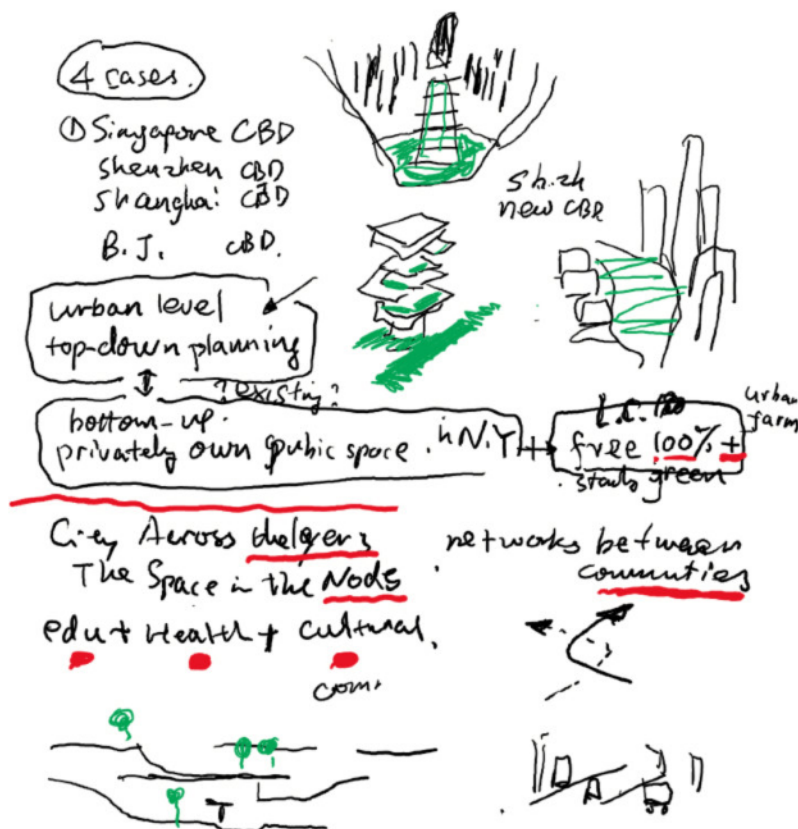 4 cases.
① Singapore CBD
shenzhen CBD
shanghai CBD
B.J. CBD.
new CBD
urban level
top-down planning
?existing?
bottom-up.
privately own pubic space. in N.Y
L.C.
free 100% +
green
urban
farm
City Across the layers
The Space in the Node.
networks between
communties
edu + Health + cultural.
com.
T